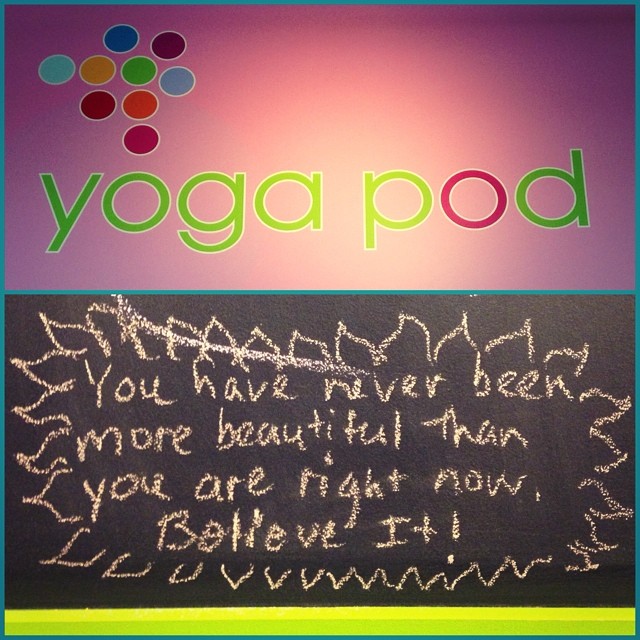 yoga pod
You have never been
more beautiful than
you are right now.
Believe It!